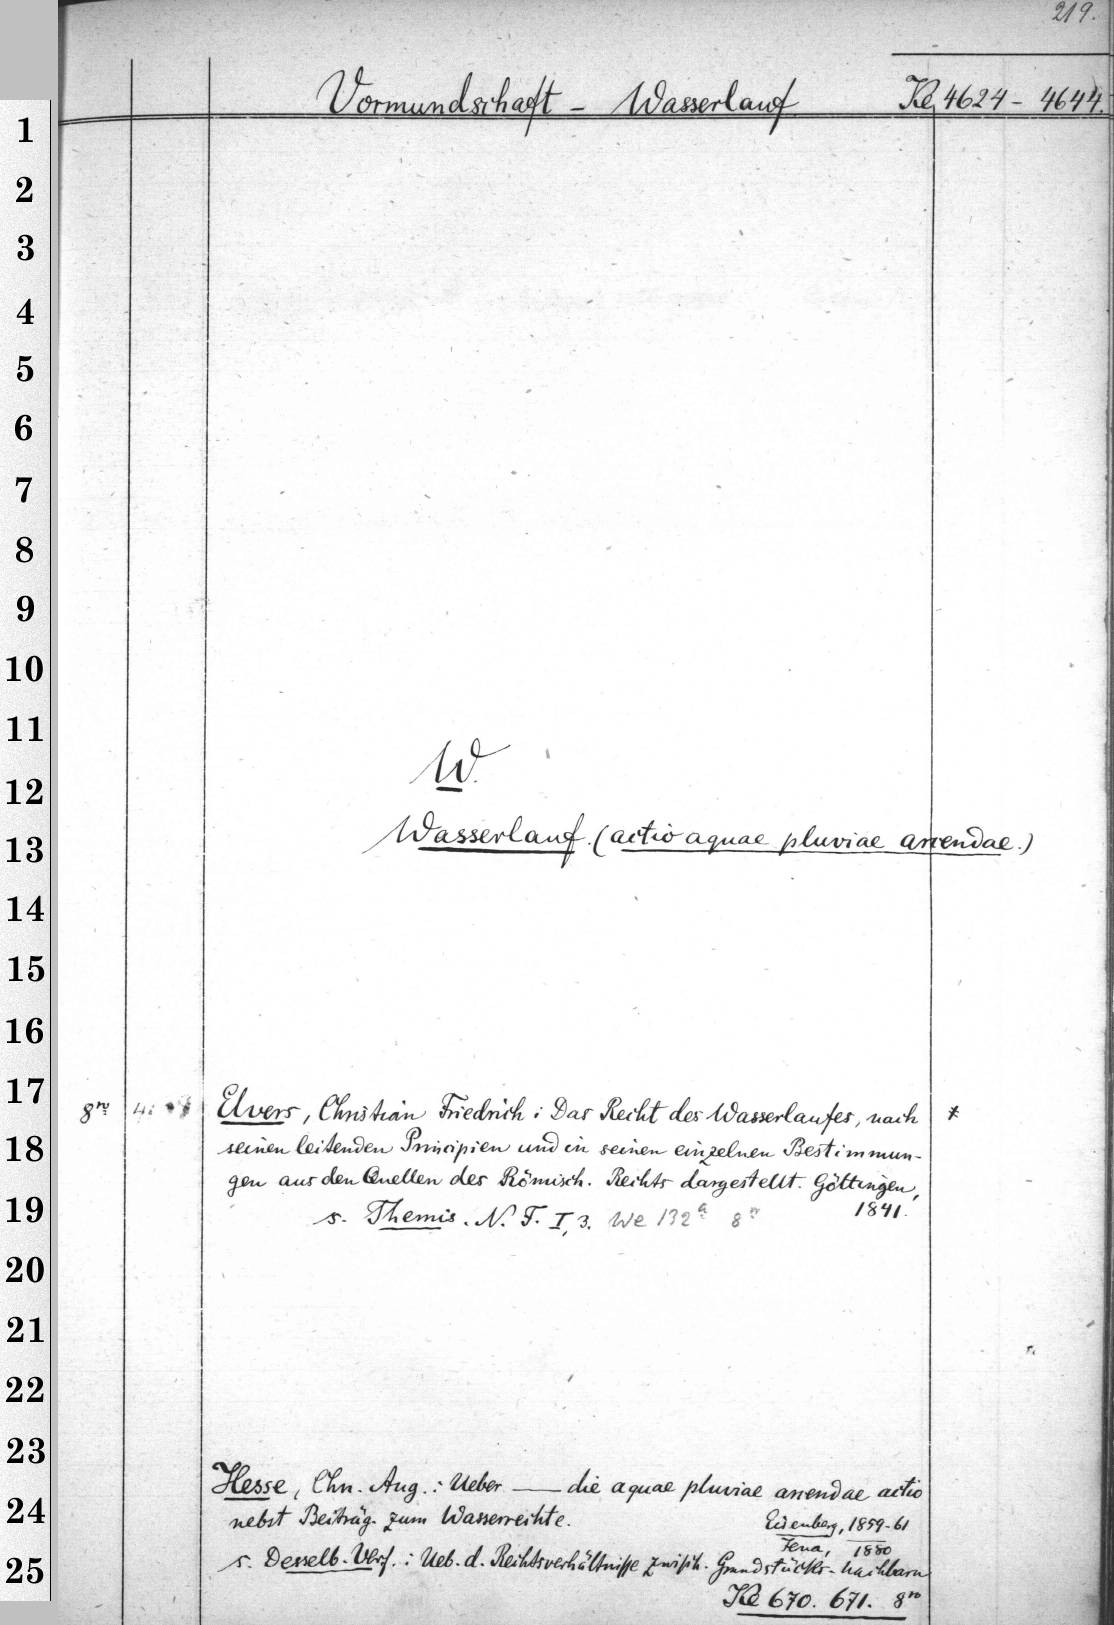 219.
Vormundschaft - Wasserlauf Ke 4624 - 4644.
1
2
3
4
5
6
7
8
9
10
11
W.
12
Wasserlauf. (actio aquae pluviae arcendae.)
13
14
15
16
17
8ro 4: Elvers, Christian Friedrich: Das Recht des Wasserlaufes, nach *
18 seinen leitenden Principien und in seinen einzelnen Bestimmun-
gen aus den Quellen des Römisch. Rechts dargestellt. Göttingen,
19 1841.
s. Themis. N. F. I, 3. We 132a 8ro
20
21
22
23
Hesse, Chn. Aug.: Ueber —— die aquae pluviae arcendae actio
24 nebst Beiträg. zum Wasserrechte. Eisenberg, 1859-61
Jena, 1880
25 s. Desselb. Verf.: Ueb. d. Rechtsverhältnisse zwisch. Grundstücks-Nachbarn
Ke 670. 671. 8ro